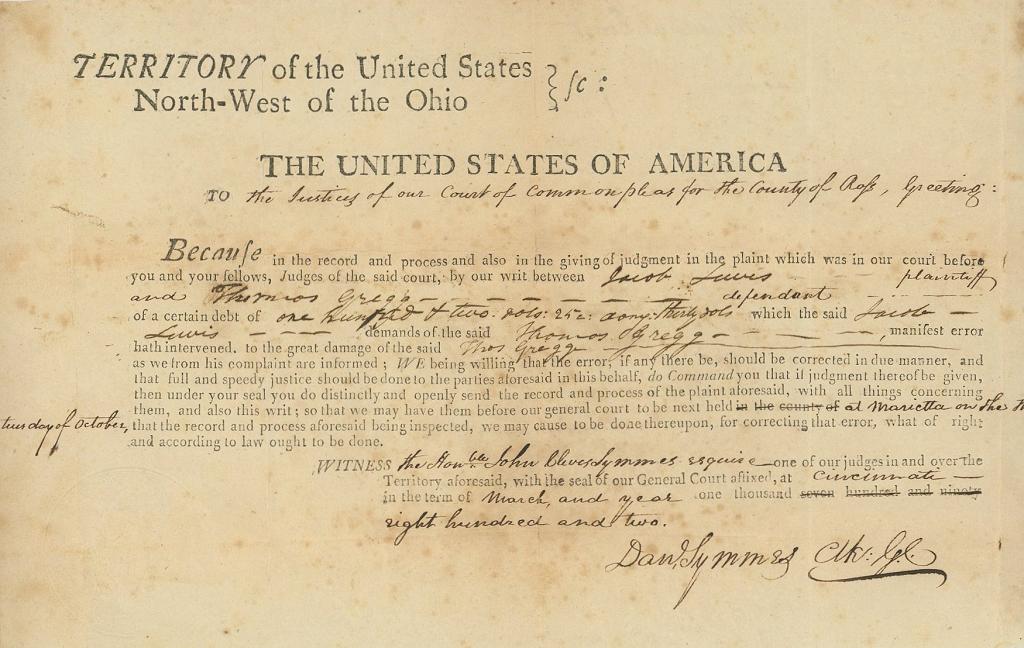 TERRITORY of the United States } sc:
North-West of the Ohio
THE UNITED STATES OF AMERICA
TO the Justices of our Court of Common pleas for the County of Ross, Greeting:
Because in the record and process and also in the giving of judgment in the plaint which was in our court before
you and your fellows, Judges of the said court, by our writ between Jacob Lewis plaintiff
and Thomas Gregg defendant
of a certain debt of one hundred & two dols: 25c: which the said Jacob
Lewis demands of the said Thomas Gregg, manifest error
hath intervened, to the great damage of the said Thos Gregg
as we from his complaint are informed; WE being willing that the error, if any there be, should be corrected in due manner, and
that full and speedy justice should be done to the parties aforesaid in this behalf, do Command you that if judgment thereof be given,
then under your seal you do distinctly and openly send the record and process of the plaint aforesaid, with all things concerning
them, and also this writ; so that we may have them before our general court to be next held in the county of at Marietta on the
tuesday of October, that the record and process aforesaid being inspected, we may cause to be done thereupon, for correcting that error, what of right
and according to law ought to be done.
WITNESS the Honble John Cleves Symmes esquire one of our judges in and over the
Territory aforesaid, with the seal of our General Court affixed, at Cincinnati
in the term of March, and year one thousand seven hundred and ninety
eight hundred and two.
Danl Symmes Clk: G.C.